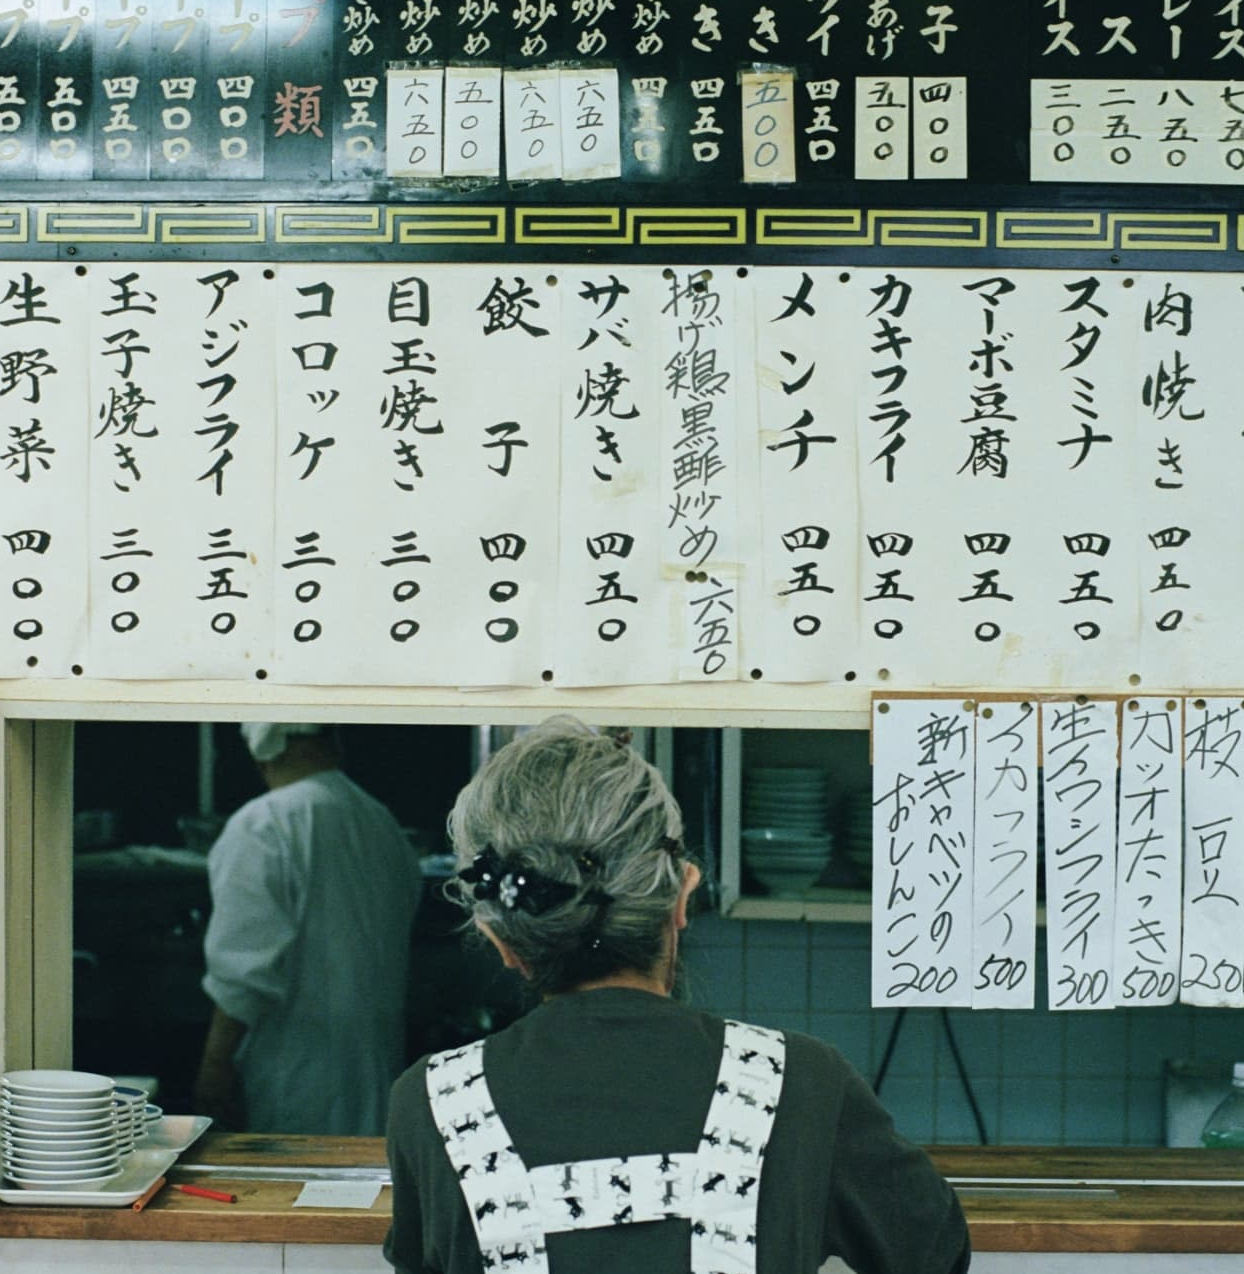 イス 七五〇
レー 八五〇
ス 二五〇
イス 三〇〇
子 四〇〇
あげ 五〇〇
イ 四五〇
き 五〇〇
き 四五〇
炒め 四五〇
炒め 六五〇
炒め 六五〇
炒め 五〇〇
炒め 六五〇
炒め 四五〇
プ類
ープ 四〇〇
ープ 四〇〇
ープ 四五〇
ープ 五〇〇
プ 五〇〇
肉焼き 四五〇
スタミナ 四五〇
マーボ豆腐 四五〇
カキフライ 四五〇
メンチ 四五〇
揚げ鶏黒酢炒め 六五〇
サバ焼き 四五〇
餃子 四〇〇
目玉焼き 三〇〇
コロッケ 三〇〇
アジフライ 三五〇
玉子焼き 三〇〇
生野菜 四〇〇
枝豆 250
カツオたゝき 500
生イワシフライ 300
イカフライ 500
新キャベツの
おしんこ 200